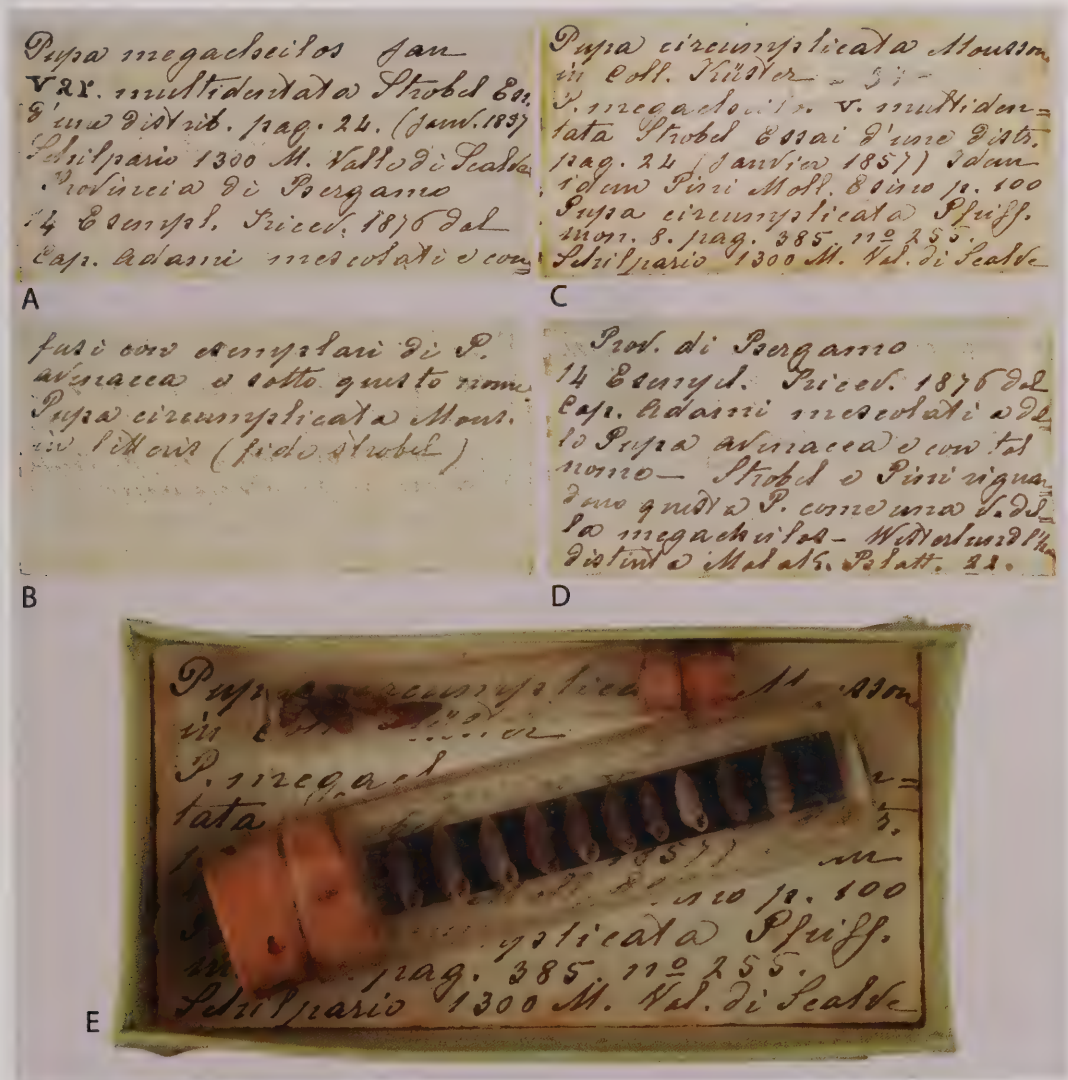 Pupa megacheilos Jan
var. multidentata Strobel Ess.
d'une distrib. pag. 24. (Janv. 1857
Schilpario 1300 M. Valle di Scalve
Provincia di Bergamo
14 Esempl. Ricev. 1876 dal
Cap. Adami mescolati e con
A
fusi con esemplari di P.
avenacea e sotto questo nome.
Pupa circumplicata Mous.
in litteris (fide Strobel)
B
Pupa circumplicata Mousson
in Coll. Küster
P. megacheilos v. multiden=
tata Strobel Essai d'une distr.
pag. 24 (Janvier 1857) Idem
idem Pini Moll. Esino p. 100
Pupa circumplicata Pfeiff.
mon. 8. pag. 385 nº 255.
Schilpario 1300 M. Val. di Scalve
C
Prov. di Bergamo
14 Esempl. Ricev. 1876 dal
Cap. Adami mescolati a del=
la Pupa avenacea e con tal
nome — Strobel e Pini riguar=
dano questa P. come una v. del=
la megacheilos — Westerlund l'ha
distinta Malak. Blatt. 22.
D
Pupa circumplica Mousson
in Coll. Küster
P. megach
tata
1857)
no p. 100
plicata Pfeiff.
pag. 385. nº 255.
Schilpario 1300 M. Val. di Scalve
E